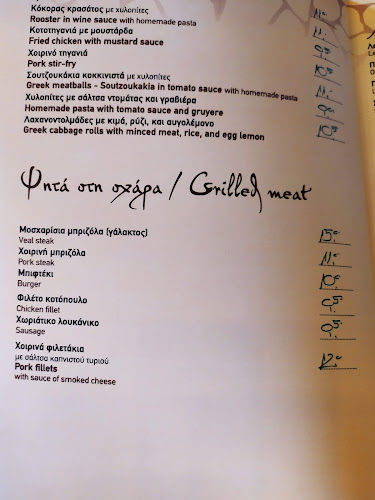 Κόκορας κρασάτος με χυλοπίτες
Rooster in wine sauce with homemade pasta
Κοτοτηγανιά με μουστάρδα
Fried chicken with mustard sauce
Χοιρινό τηγανιά
Pork stir-fry
Σουτζουκάκια κοκκινιστά με χυλοπίτες
Greek meatballs - Soutzoukakia in tomato sauce with homemade pasta
Χυλοπίτες με σάλτσα ντομάτας και γραβιέρα
Homemade pasta with tomato sauce and gruyere
Λαχανοντολμάδες με κιμά, ρύζι, και αυγολέμονο
Greek cabbage rolls with minced meat, rice, and egg lemon
Ψητά στη σχάρα / Grilled meat
Μοσχαρίσια μπριζόλα (γάλακτος)
Veal steak
Χοιρινή μπριζόλα
Pork steak
Μπιφτέκι
Burger
Φιλέτο κοτόπουλο
Chicken fillet
Χωριάτικο λουκάνικο
Sausage
Χοιρινά φιλετάκια
με σάλτσα καπνιστού τυριού
Pork fillets
with sauce of smoked cheese